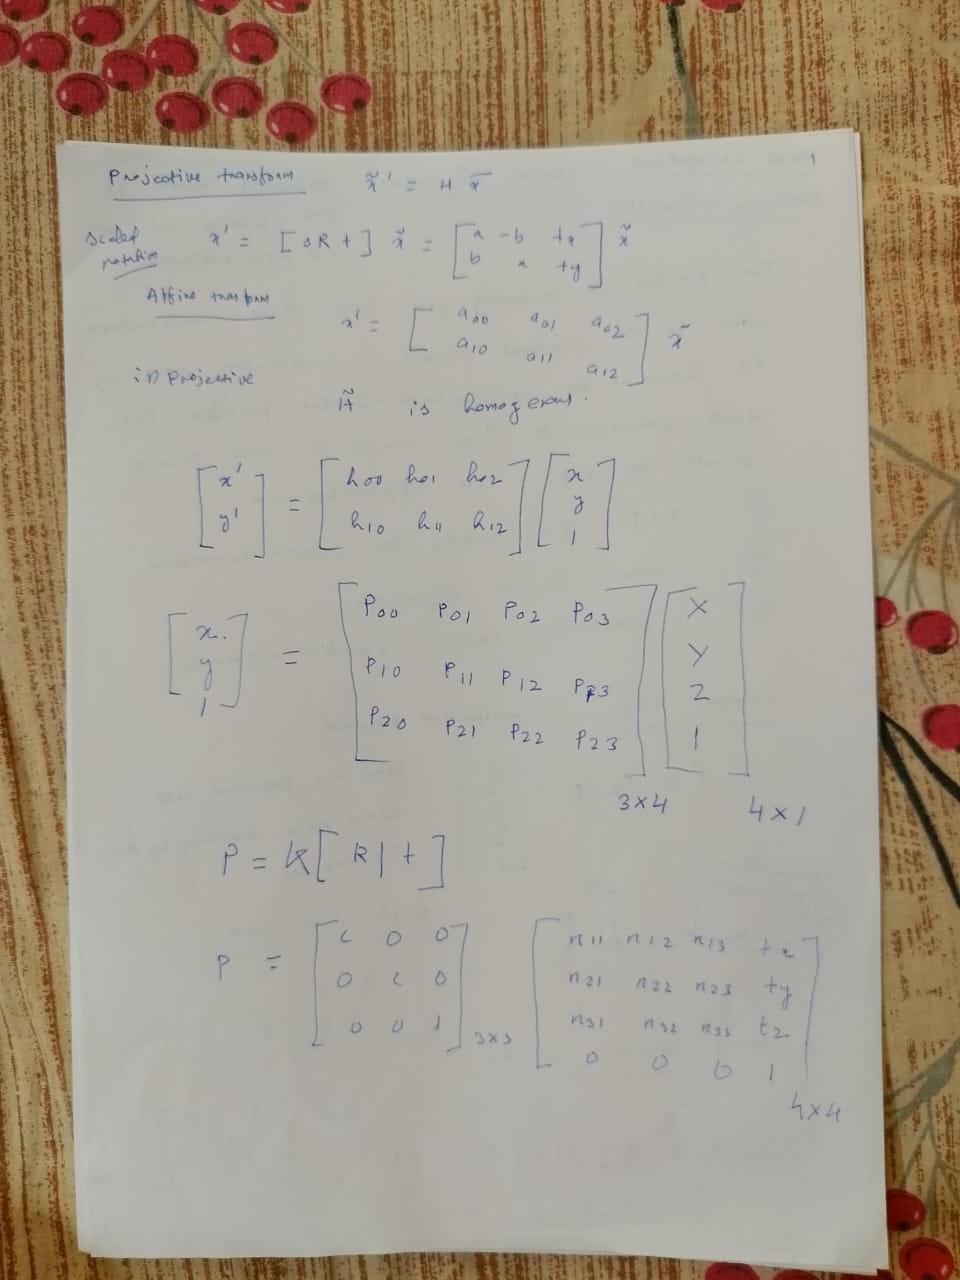 1
Projective transform x̃' = H x̄
scaled rotation x' = [ sR t ] x̃ = [ a -b tx ; b a ty ] x̃
Affine transform
x' = [ a00 a01 a02 ; a10 a11 a12 ] x̃
in projective
H̃ is homogenous.
[ x' ; y' ] = [ h00 h01 h02 ; h10 h11 h12 ] [ x ; y ; 1 ]
[ x. ; y ; 1 ] = [ P00 P01 P02 P03 ; P10 P11 P12 P13 ; P20 P21 P22 P23 ] [ X ; Y ; Z ; 1 ]
3×4 4×1
P = K [ R | t ]
P = [ c 0 0 ; 0 c 0 ; 0 0 1 ] 3×3 [ r11 r12 r13 tx ; r21 r22 r23 ty ; r31 r32 r33 tz ; 0 0 0 1 ]
4×4